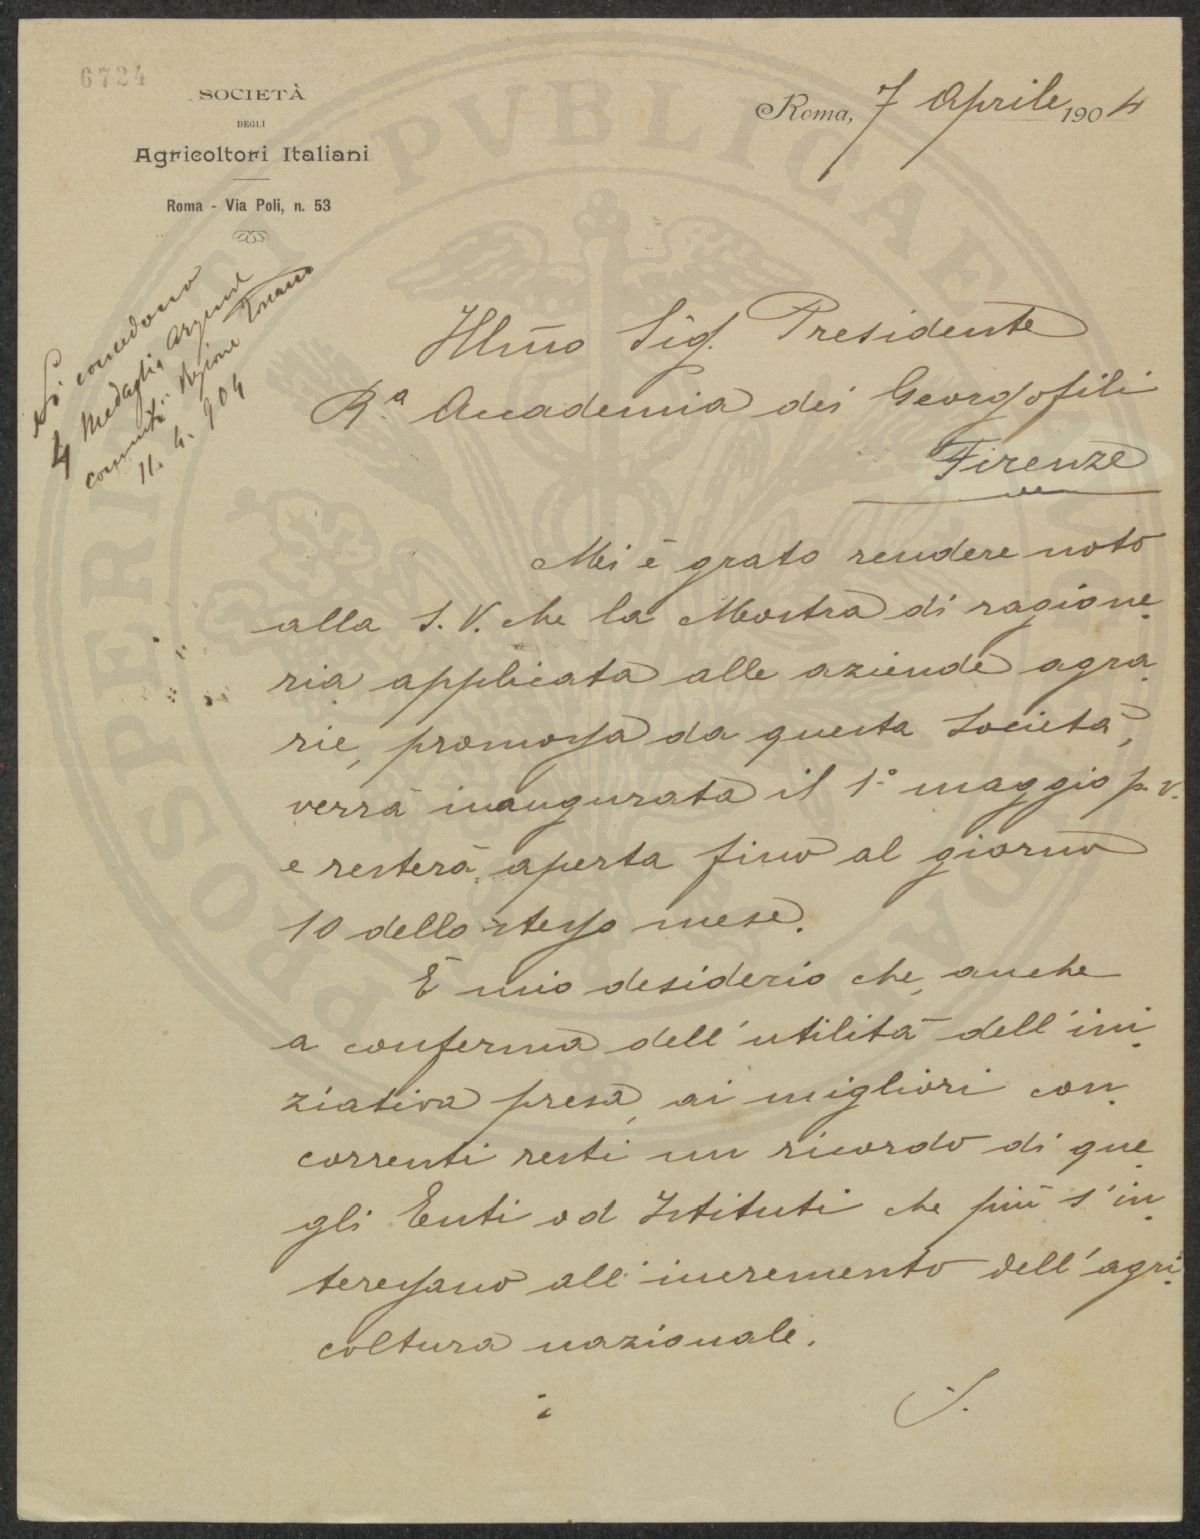 6724
SOCIETÀ
DEGLI
Agricoltori Italiani
Roma - Via Poli, n. 53
Roma, 7 Aprile 1904
Si concedono
4 Medaglia Argent
Regione Toscana
11. 4. 904
Illmo Sig. Presidente
R.a Accademia dei Georgofili
Firenze
Mi è grato rendere noto
alla S. V. che la Mostra di ragione-
ria applicata alle aziende agra-
rie, promossa da questa Società,
verrà inaugurata il 1° maggio p. v.
e resterà aperta fino al giorno
10 dello stesso mese.
È mio desiderio che, anche
a conferma dell'utilità dell'ini-
ziativa presa, ai migliori con-
correnti resti un ricordo di que-
gli Enti od Istituti che più s'in-
teressano all'incremento dell'agri-
coltura nazionale.
PROSPERITATI PVBLICAE AVGENDAE